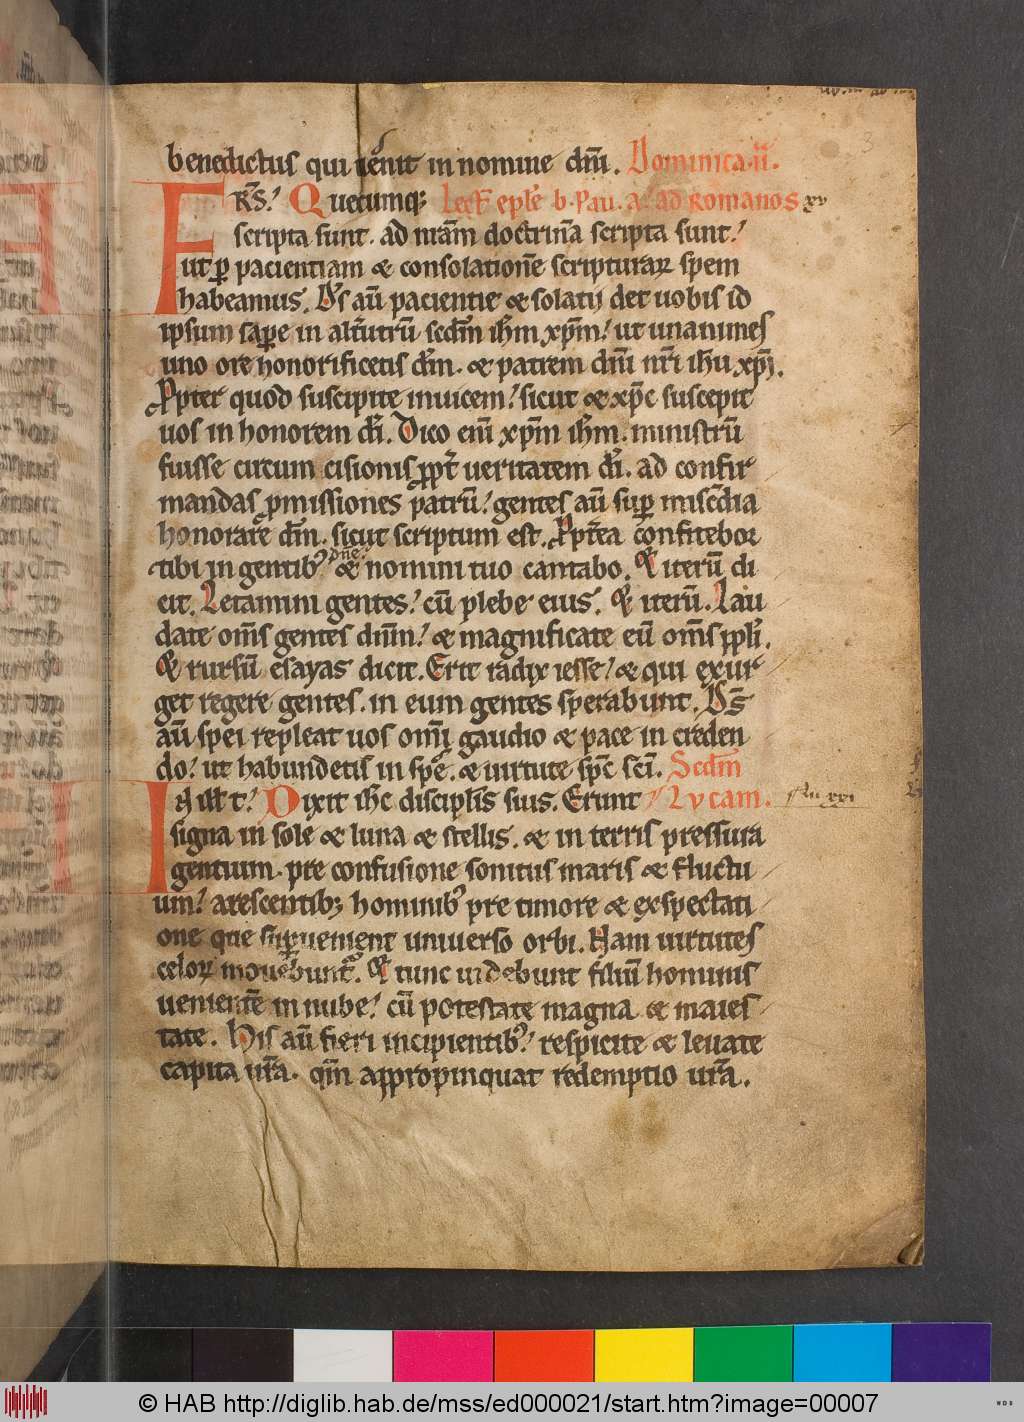 benedictus qui uenit in nomine dn̄i. Dominica .ii.
FRS̄! Quecumq; Lect̄ epl̄e b. Pau. a. ad Romanos xv
scripta sunt. ad nr̄am doctrinā scripta sunt!
ut ꝑ pacientiam & consolationē scripturaꝝ spem
habeamus. Ds̄ aū pacientie & solatij det uobis id
ipsum saꝑe in alt̄utrū scd̄m ih̄m xp̄m! ut unanimes
uno ore honorificetis dm̄. & patrem dn̄i nr̄i ih̄u xp̄i.
Ꝓpter quod suscipite inuicem! sicut & xp̄c suscepit
uos in honorem dī. Dico enī xp̄m ih̄m. ministrū
fuisse circum cisionis ꝓpt̄ ueritatem dī. ad confir
mandas ꝓmissiones patrū! gentes aū suꝑ mis̄cdia
honorare dm̄. sicut scriptum est. Ꝓpt̄ea confitebor
tibi in gentib; dn̄e! & nomini tuo cantabo. Et iterū di
cit. Letamini gentes! cū plebe eius. Et iterū. Lau
date om̄s gentes dn̄m! & magnificate eū om̄s ppl̄i.
Et rursū esayas dicit. Erit radix iesse! & qui exur
get regere gentes. in eum gentes sperabunt. Ds̄
aū spei repleat uos om̄i gaudio & pace in creden
do! ut habundetis in spē. & uirtute sp̄c sc̄i. Scd̄m
In ill̄ t! Dixit ih̄c discipl̄is suis. Erunt Lucam. xxi
signa in sole & luna & stellis. & in terris pressura
gentium. pre confusione sonitus maris & fluctu
um! arescentib; hominib; pre timore & exspectati
one que suꝑuenient uniuerso orbi. Nam uirtutes
celoꝝ mouebuntᷣ. Et tunc uidebunt filiū hominis
uenientē in nube! cū potestate magna & maies
tate. His aū fieri incipientib;! respicite & leuate
capita ur̄a. qm̄ appropinquat redemptio ur̄a.
3
© HAB http://diglib.hab.de/mss/ed000021/start.htm?image=00007